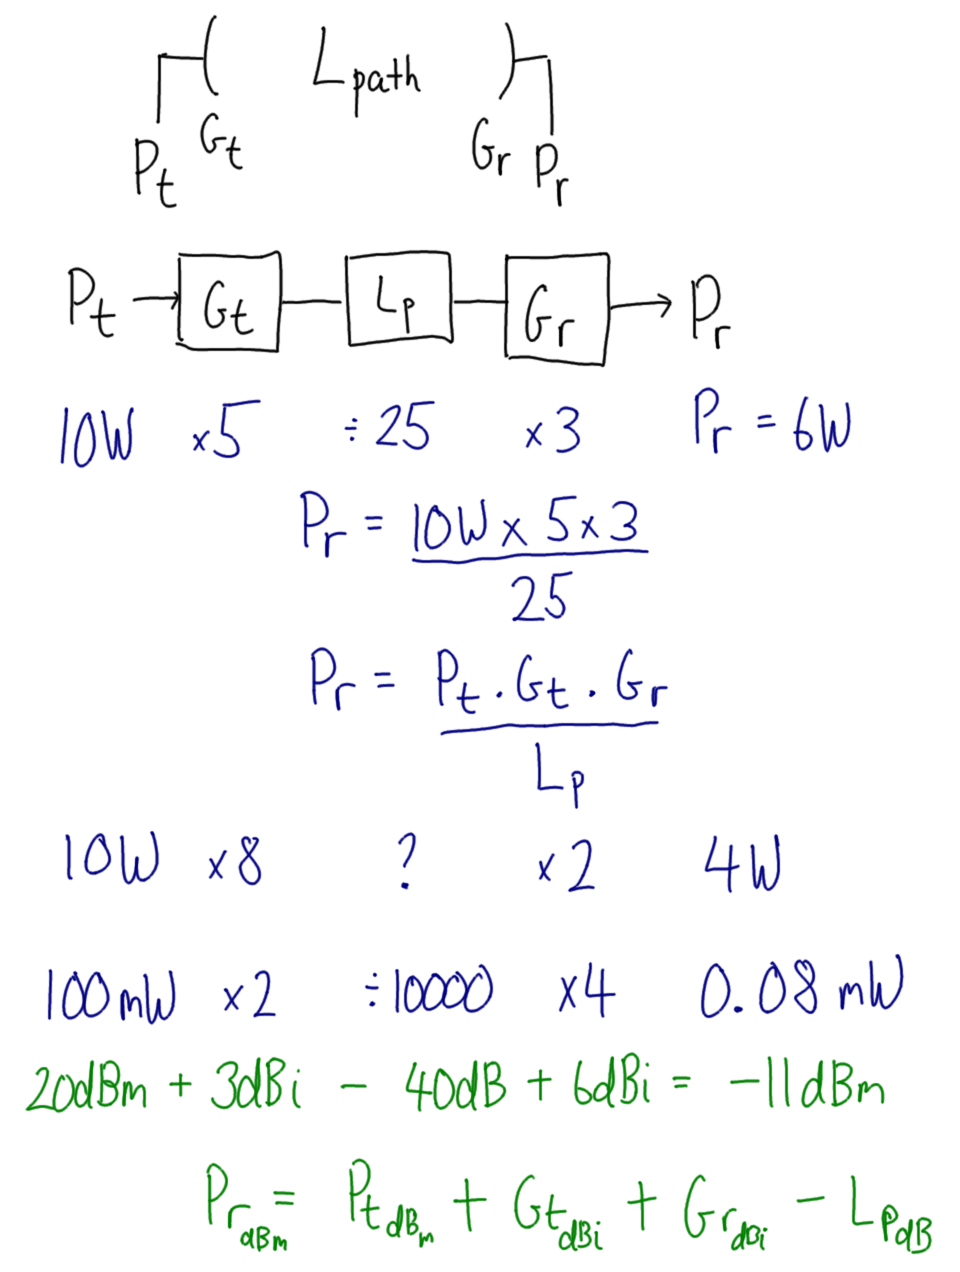 L path
Gt Gr
Pt Pr
Pt → Gt Lp Gr → Pr
10W ×5 ÷25 ×3 Pr = 6W
Pr = 10W × 5 × 3
25
Pr = Pt . Gt . Gr
Lp
10W ×8 ? ×2 4W
100mW ×2 ÷10000 ×4 0.08mW
20dBm + 3dBi - 40dB + 6dBi = -11dBm
Pr dBm = Pt dBm + Gt dBi + Gr dBi - Lp dB